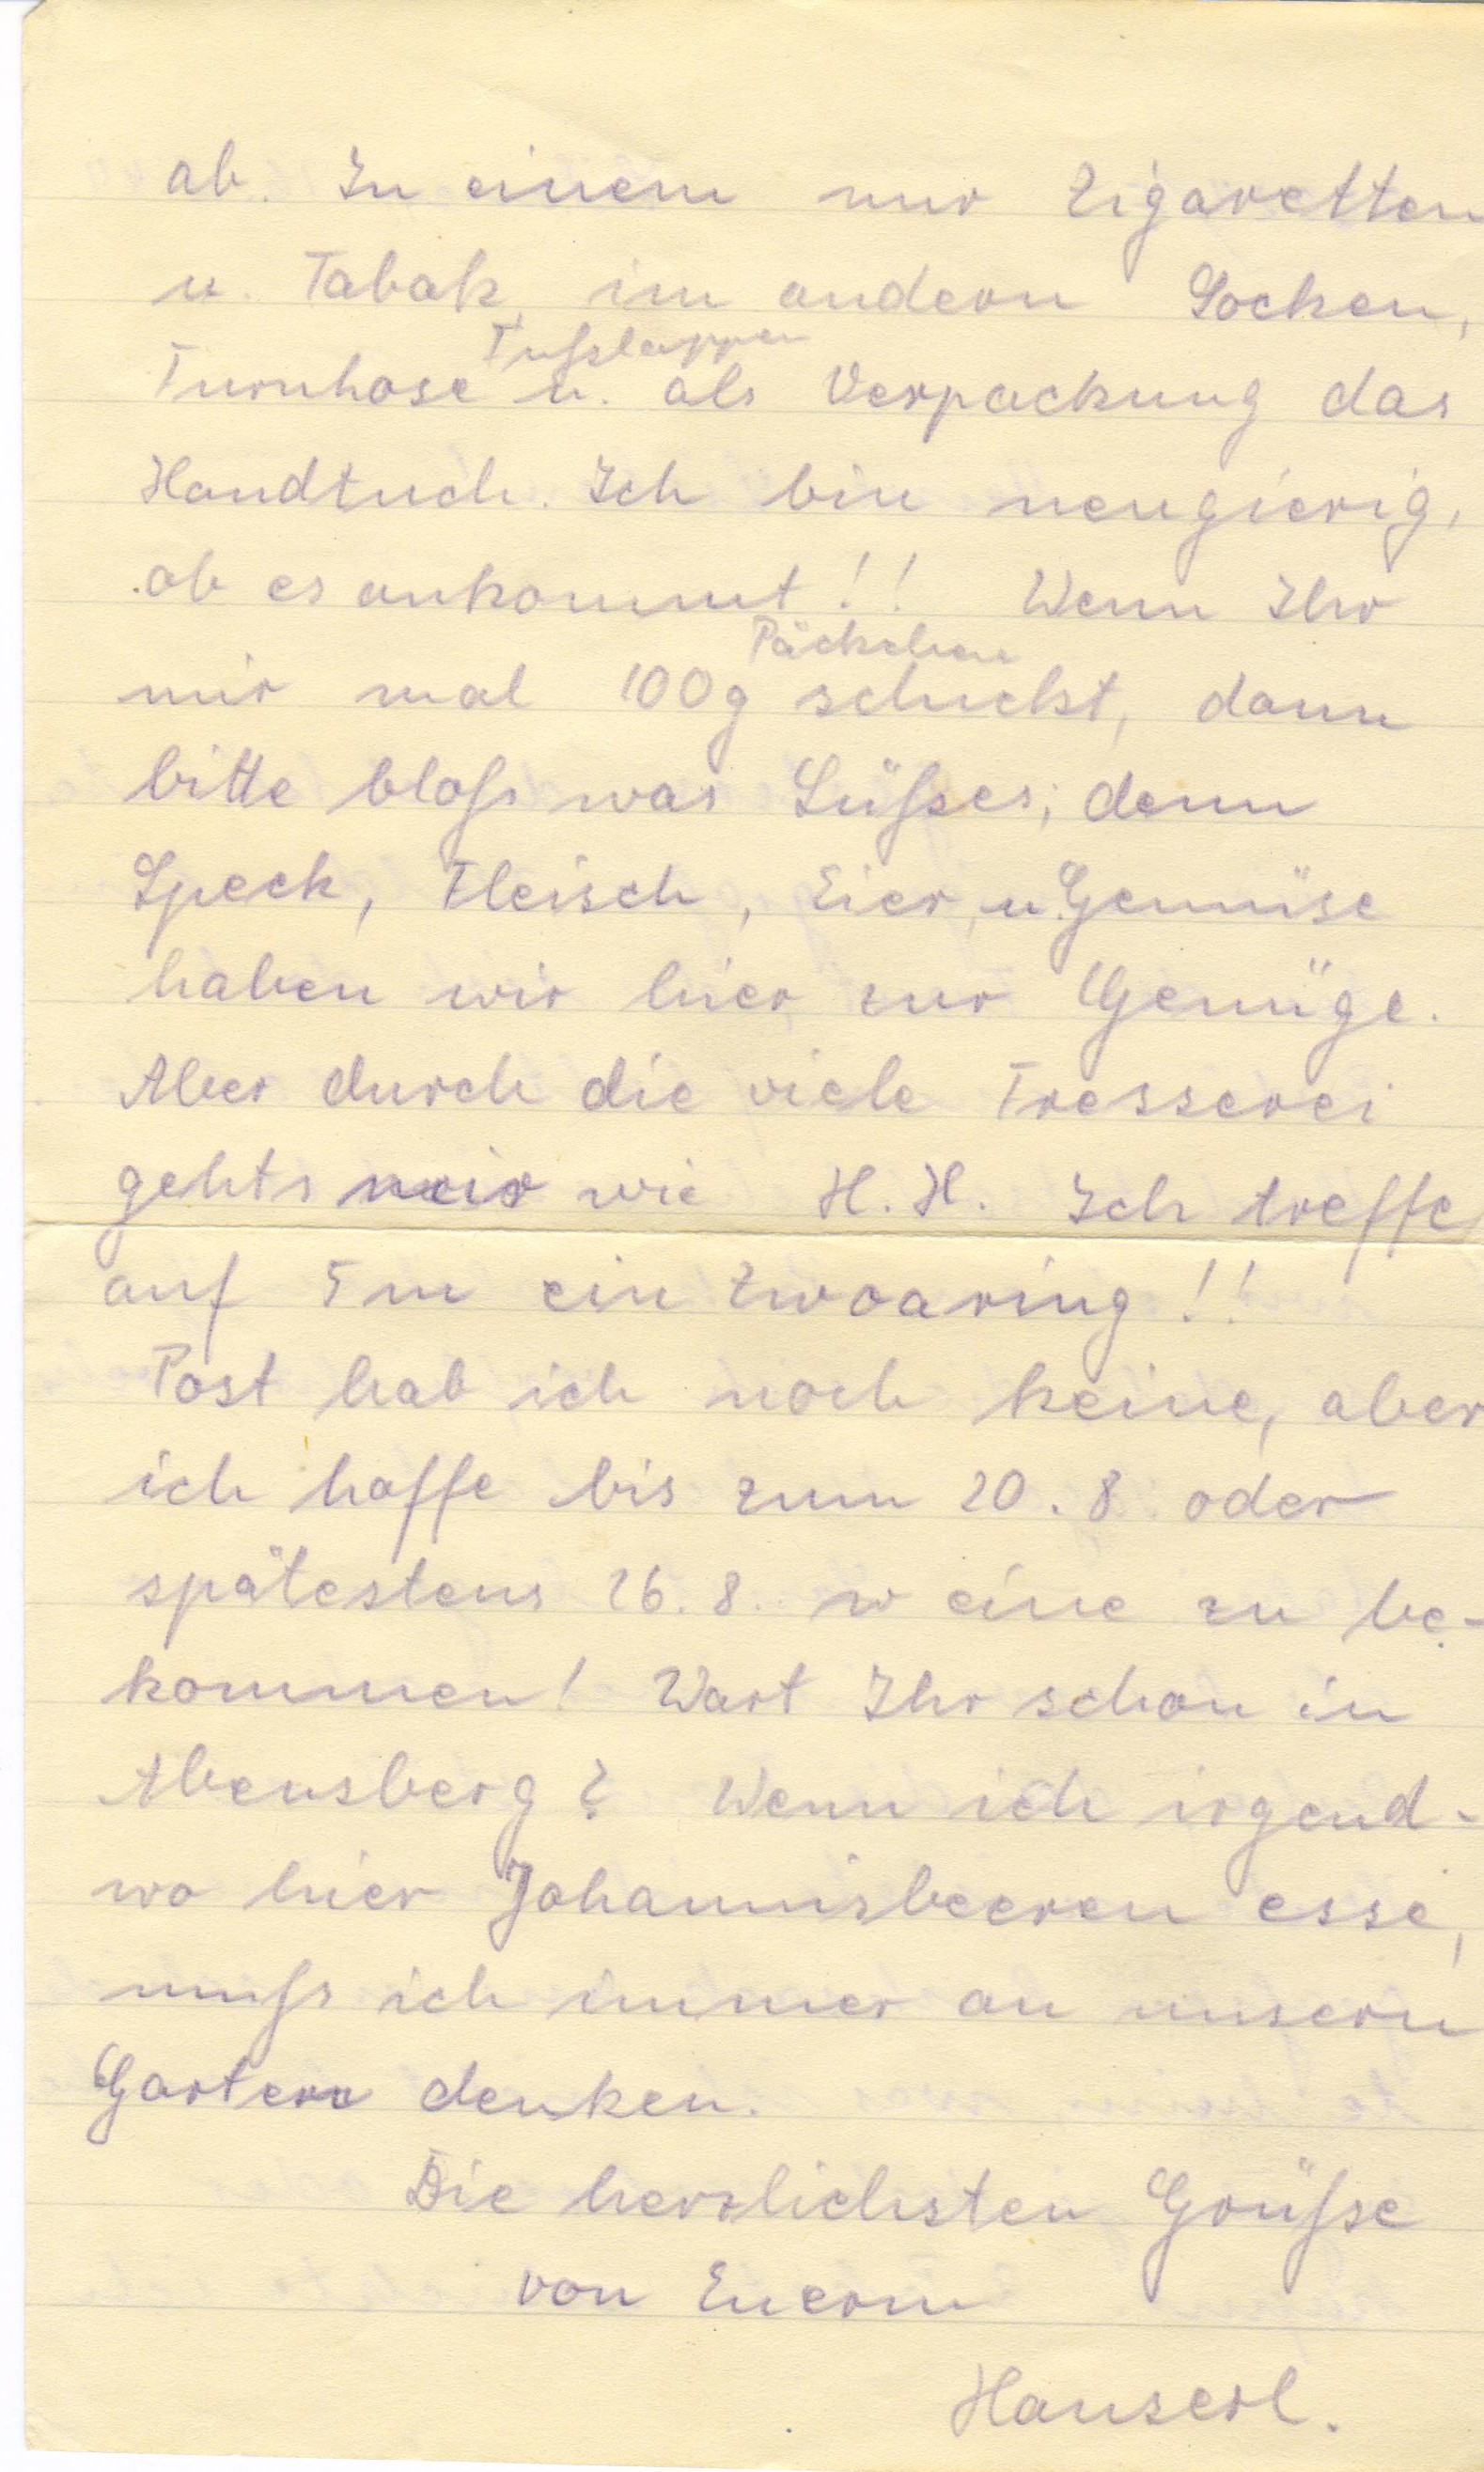 ab. In einem nur Zigaretten
u. Tabak, im andern Socken,
Fußlappen
Turnhose u. als Verpackung das
Handtuch. Ich bin neugierig,
ob es ankommt!! Wenn Ihr
Päckchen
mir mal 100g schickst, dann
bitte bloß was Süßes; denn
Speck, Fleisch, Eier, u. Gemüse
haben wir hier zur Genüge.
Aber durch die viele Fresserei
gehts mir wie H. H. Ich treffe
auf 5 m ein Zwoaring!!
Post hab ich noch keine, aber
ich hoffe bis zum 20. 8. oder
spätestens 26. 8. eine zu be-
kommen! Wart Ihr schon in
Abensberg? Wenn ich irgend-
wo hier Johannisbeeren esse,
muß ich immer an unsern
Garten denken.
Die herzlichsten Grüße
von Euerm
Hanserl.